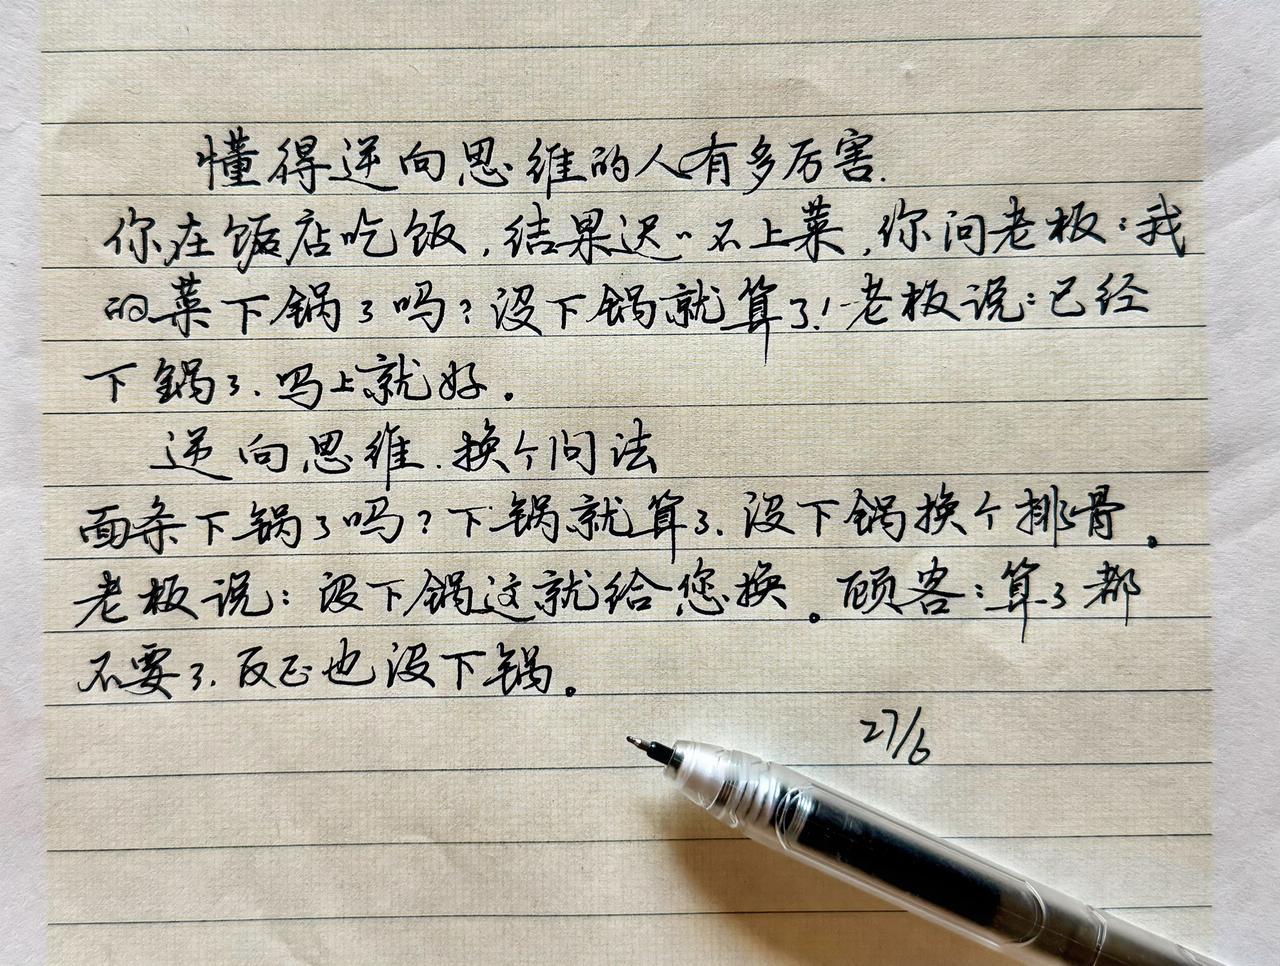 懂得逆向思维的人有多厉害.
你在饭店吃饭,结果迟〃不上菜,你问老板:我
的菜下锅了吗?没下锅就算了!老板说:已经
下锅了.吗上就好。
逆向思维.换个问法
面条下锅了吗?下锅就算了.没下锅换个排骨。
老板说:没下锅这就给您换。顾客:算了都
不要了.反正也没下锅。
27/6